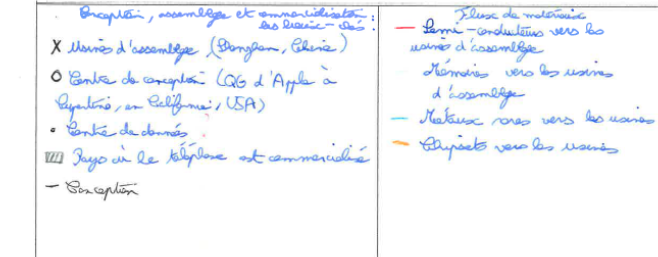 Conception, assemblage et commercialisation :
les lieux-clés :
X Usines d'assemblage (Longhua, Chine)
O Centre de conception (QG d'Apple à
Cupertino, en Californie, USA)
• Centre de données
Pays où le téléphone est commercialisé
— Conception
Flux de matériaux
— Semi-conducteurs vers les
usines d'assemblage
Mémoires vers les usines
d'assemblage
— Métaux rares vers les usines
— Chipsets vers les usines